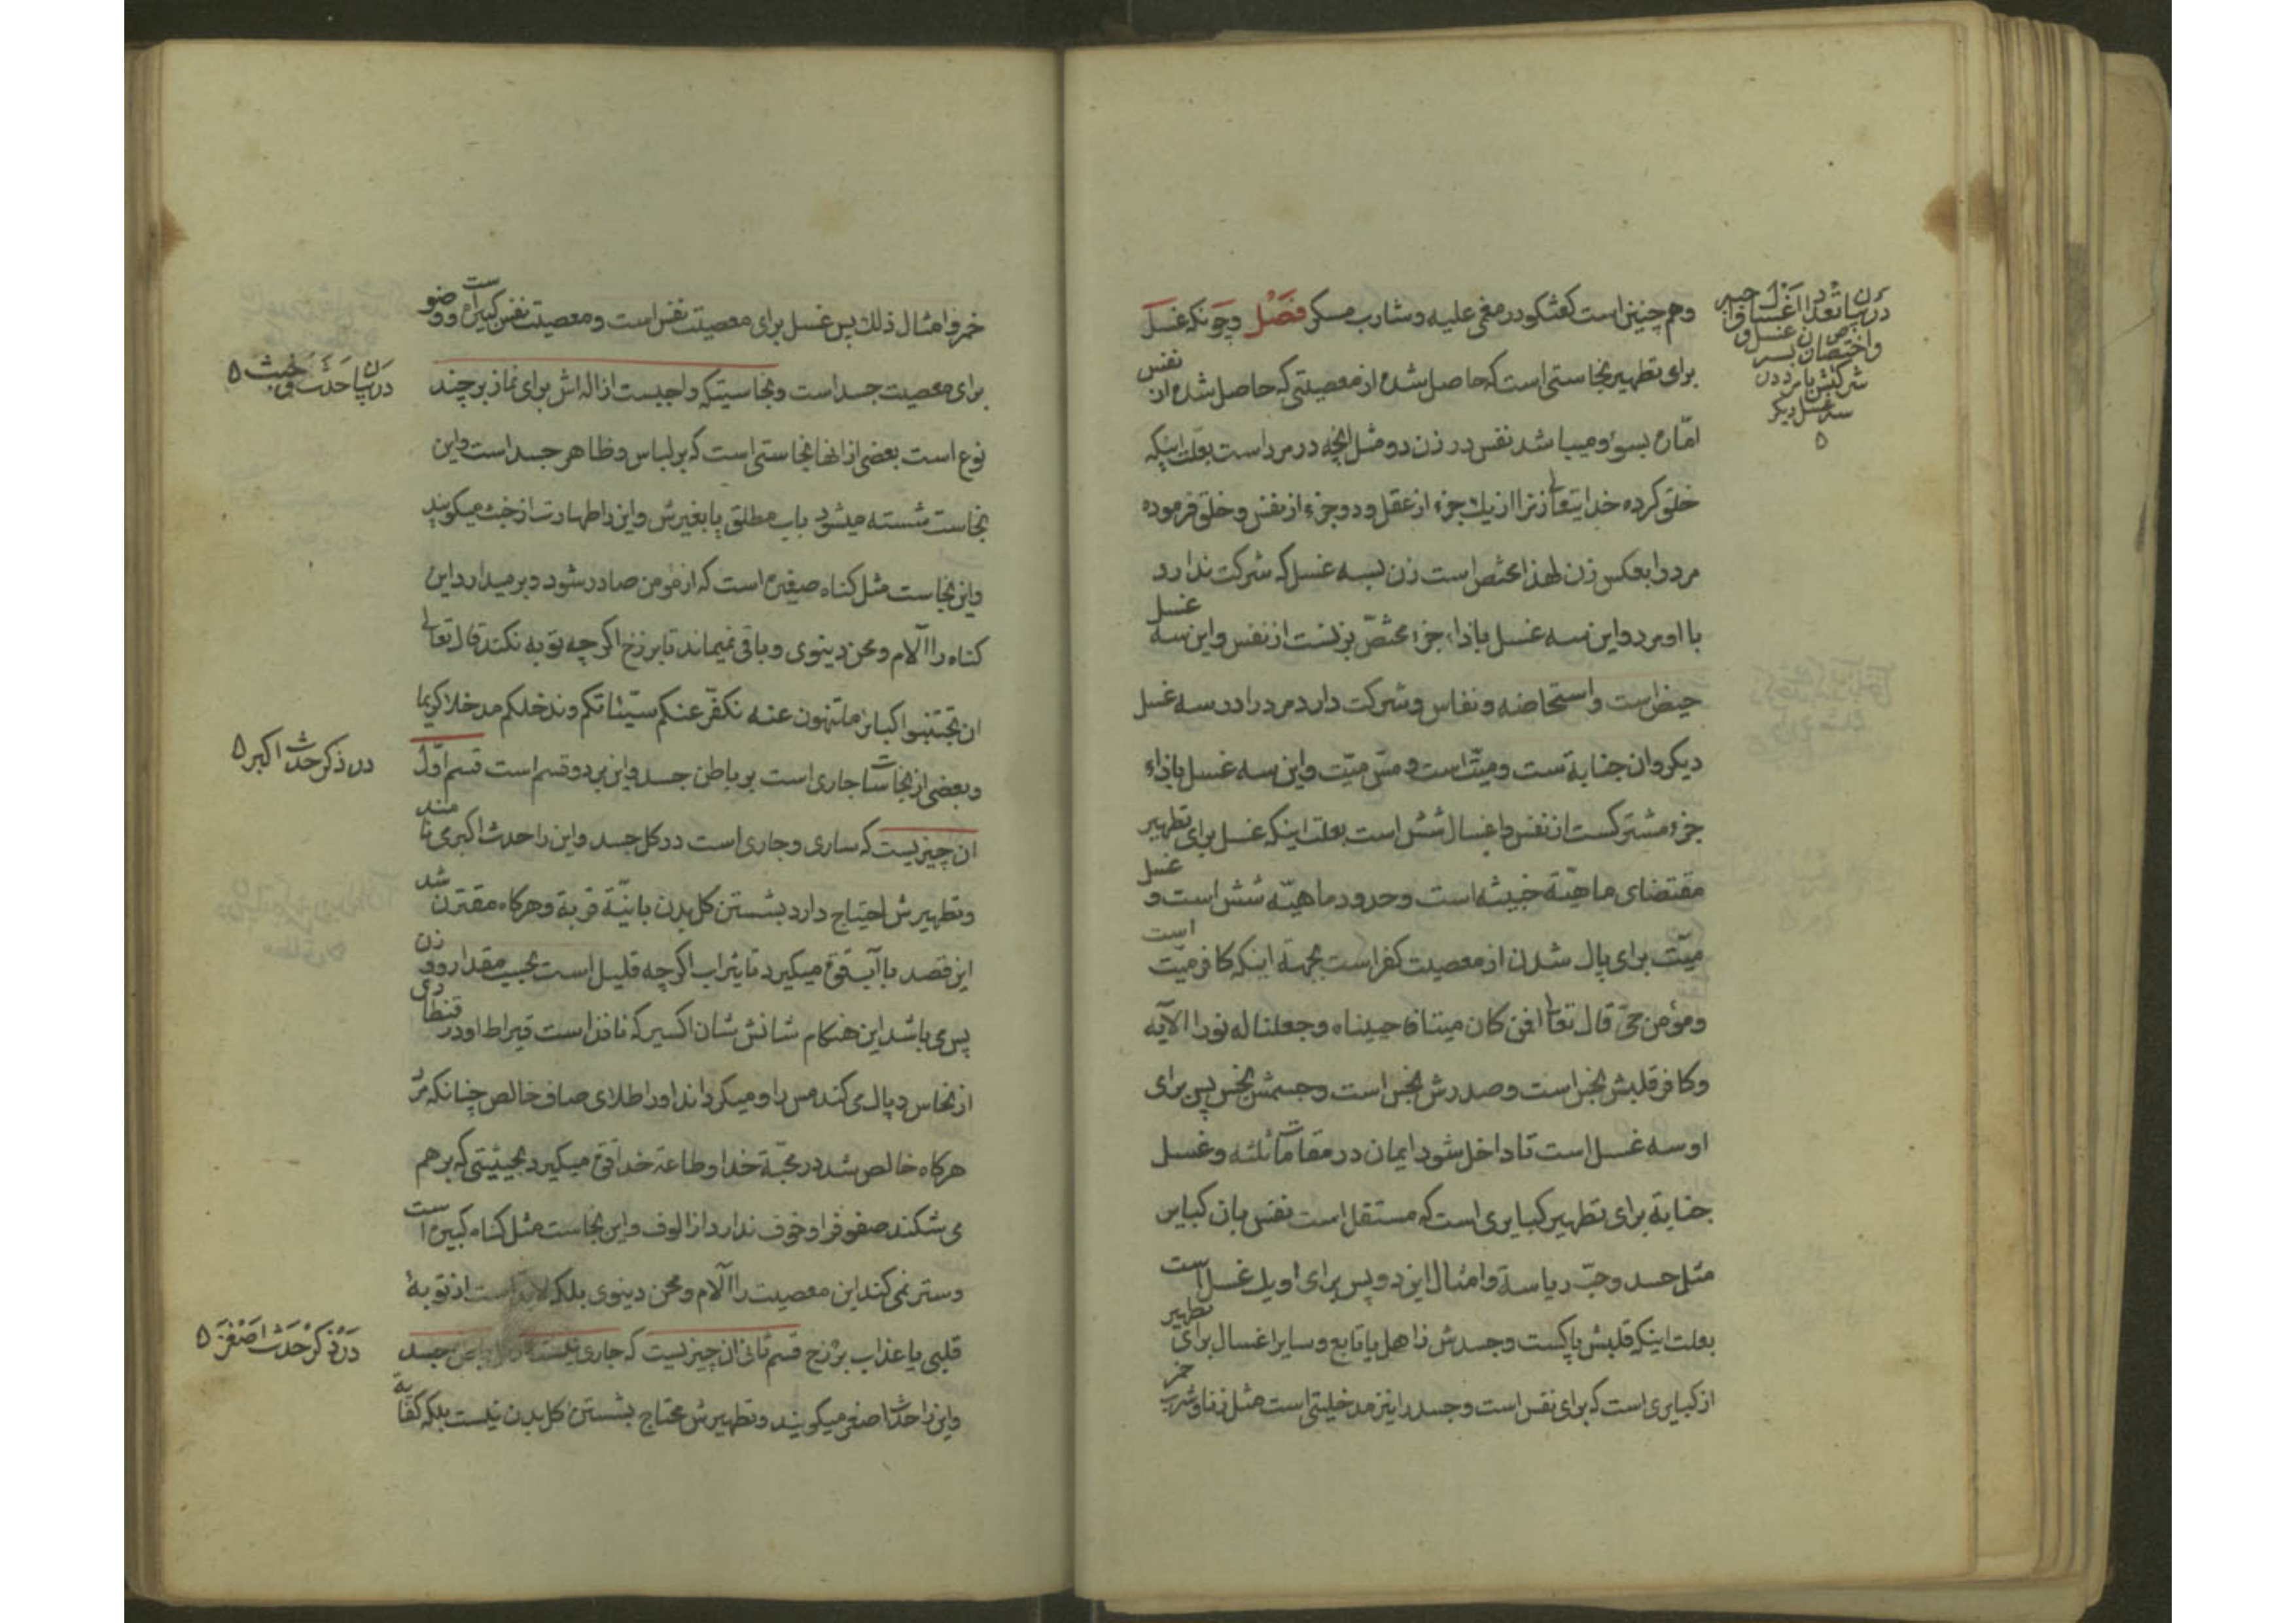 وهم چنین است گفتگو در مغمی علیه و شارب مسکر فصل و چونکه غسل
برای تطهیر نجاستی است که حاصل شده از معصیتی که حاصل شده از نفس
امّاره بسوء و میباشد نفس در زن دو مثل آنچه در مرد است بعلت اینکه
خلق کرده خدایتعالی زنرا از یك جزء از عقل و دو جزء از نفس و خلق فرموده
مرد را بعکس زن لهذا مختص است زن بسه غسل که شرکت ندارد
با او مرد و این سه غسل بازاء جزء مختصّ بزنست از نفس و این سه غسل
حیض است و استحاضه و نفاس و شرکت دارد مرد را در سه غسل
دیگر و آن جنابة ست و میّت است و مسّ میّت و این سه غسل بازاء
جزء مشترکست از نفس و اغسال شش است بعلت اینکه غسل برای تطهیر
مقتضای ماهیّة خبیثه است و حدود ماهیّه شش است و غسل
میّت برای پاك شدن از معصیت کفر است بجهة اینکه کافر میّت است
و مؤمن حیّ قال تعالی افمن کان میتا فاحییناه و جعلنا له نورا الآیه
و کافر قلبش نجس است و صدرش نجس است و جسمش نجس پس برای
او سه غسل است تا داخل شود ایمان در مقامات ثلثه و غسل
جنابة برای تطهیر کبایری است که مستقل است نفس بآن کبایر
مثل حسد و حبّ ریاسة و امثال این دو پس برای او یك غسل است
بعلت اینکه قلبش پاکست و جسدش ذاهل یا تابع و سایر اغسال برای تطهیر
از کبایری است که برای نفس است و جسد را نیز مدخلیتی است مثل زنا و شرب خمر
در بیان تعداد اغسال واجبه
و اختصاص زن بسه غسل و
شرکتش با مرد در
سه غسل دیگر
خمر و امثال ذلك پس غسل برای معصیت نفس است و معصیت نفس کبیره است و وضو
برای معصیت جسد است و نجاستیکه واجبست ازاله اش برای نماز بر چند
نوع است بعضی از انها نجاستی است که بر لباس و ظاهر جسد است و این
نجاست شسته میشود باب مطلق یا بغیرش و این را طهارت از خبث میگویند
و این نجاست مثل کناه صغیره است که از مؤمن صادر شود و برمیدارد این
کناه را آلام و محن دینوی و باقی نمیماند تا برزخ اکر چه توبه نکند قال تعالی
ان تجتنبوا کبایر ما تنهون عنه نکفّر عنکم سیّئاتکم و ندخلکم مدخلا کریما
و بعضی از نجاسات جاری است بر باطن جسد و این بر دو قسم است قسم اوّل
ان چیزیست که ساری و جاری است در کل جسد و این را حدث اکبر می نامند
و تطهیرش احتیاج دارد بشستن کل بدن با نیّة قربة و هرکاه مقترن شد
این قصد با آب قوة میکیرد تاثیر آب اکر چه قلیل است بحیث مقدار روغن
پس می باشد این هنکام شانش شان اکسیر که نافذ است قیراط او در قنطاری
از نحاس و پاك می کند مس را و میکرداند او را طلای صاف خالص چنانکه مرد
هرکاه خالص شد در محبّة خدا و طاعة خدا قوة میکیرد بحیثیتی که بر هم
می شکند صفوف را و خوف ندارد از الوف و این نجاست مثل کناه کبیره است
و ستر نمی کند این معصیت را آلام و محن دینوی بلکه لابد است از توبهٔ
قلبی یا عذاب برزخ قسم ثانی ان چیزیست که جاری نیست در کل باطن جسد
و این را حدث اصغر میگویند و تطهیرش محتاج بشستن کل بدن نیست بلکه کفایة
در بیان حدث و خبث
در ذکر حدث اکبر
در ذکر حدث اصغر